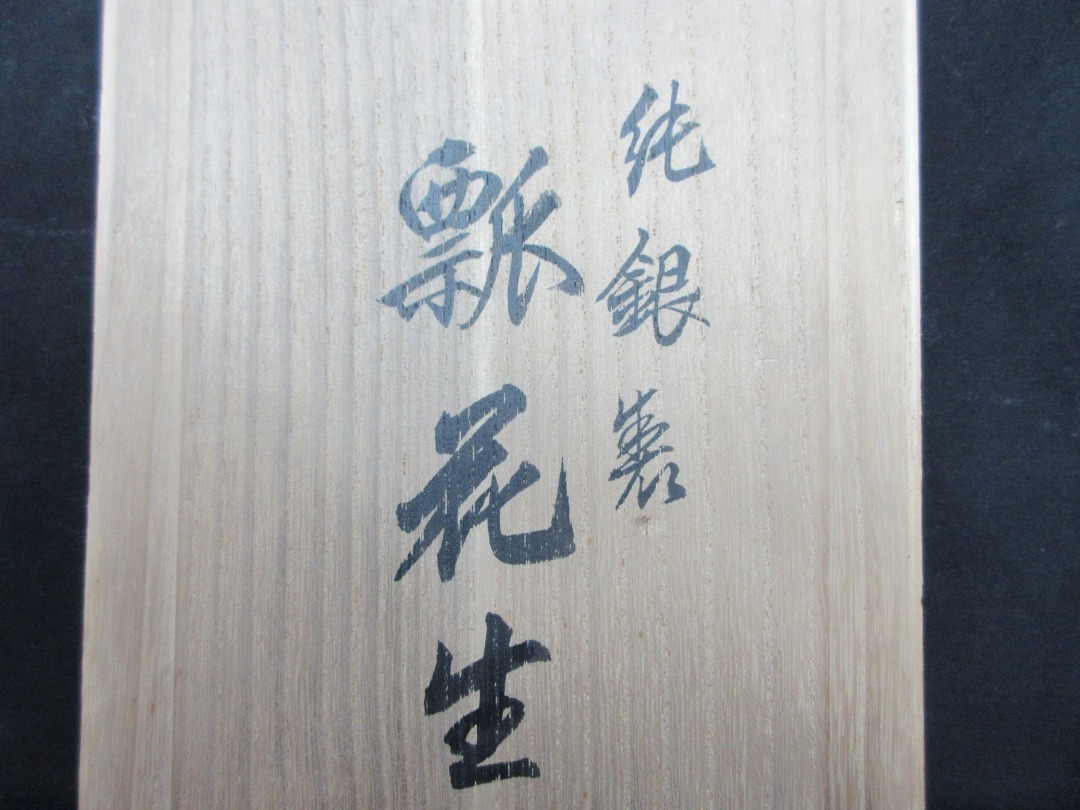 純銀製
瓢花生